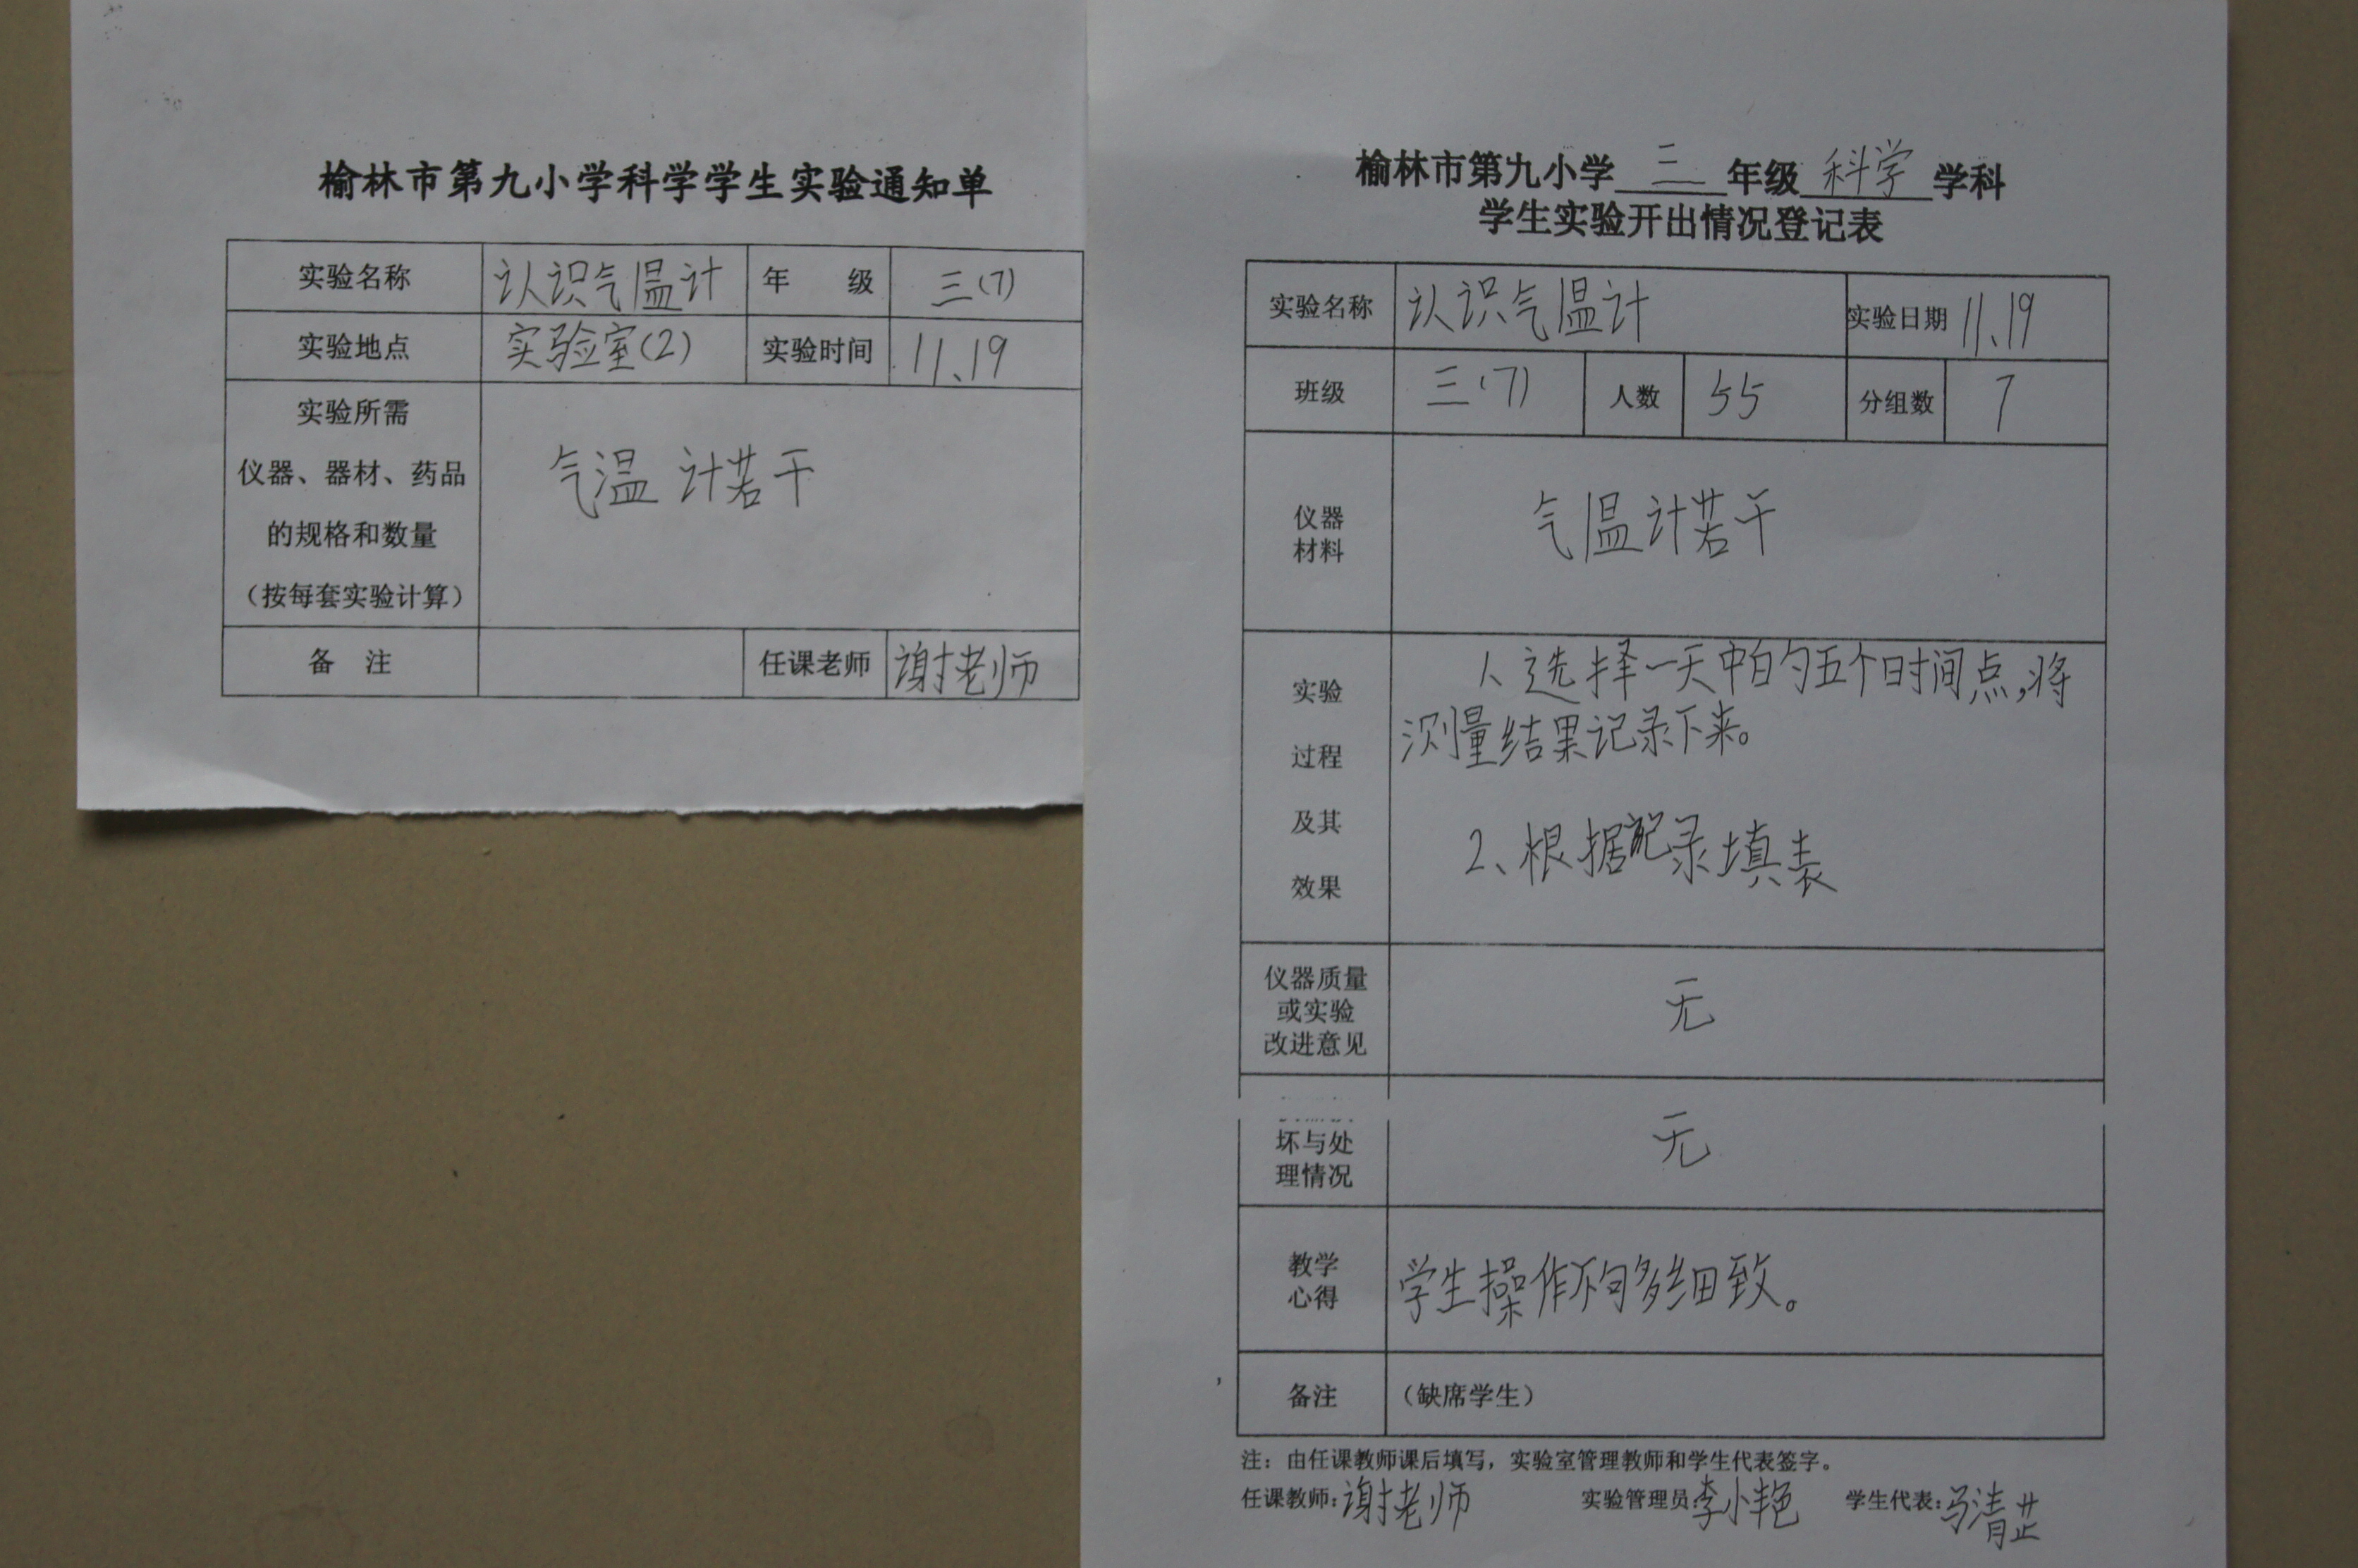 榆林市第九小学科学学生实验通知单
实验名称 认识气温计 年 级 三(7)
实验地点 实验室(2) 实验时间 11、19
实验所需
仪器、器材、药品
的规格和数量
（按每套实验计算）
气温计若干
备 注 任课老师 谢老师
榆林市第九小学 三 年级 科学 学科
学生实验开出情况登记表
实验名称 认识气温计 实验日期 11、19
班级 三(7) 人数 55 分组数 7
仪器
材料
气温计若干
实验
过程
及其
效果
1、选择一天中的五个时间点,将
测量结果记录下来。
2、根据记录填表
仪器质量
或实验
改进意见
无
坏与处
理情况
无
教学
心得
学生操作不够细致。
备注 （缺席学生）
注：由任课教师课后填写，实验室管理教师和学生代表签字。
任课教师：谢老师 实验管理员：李小艳 学生代表：马清芷